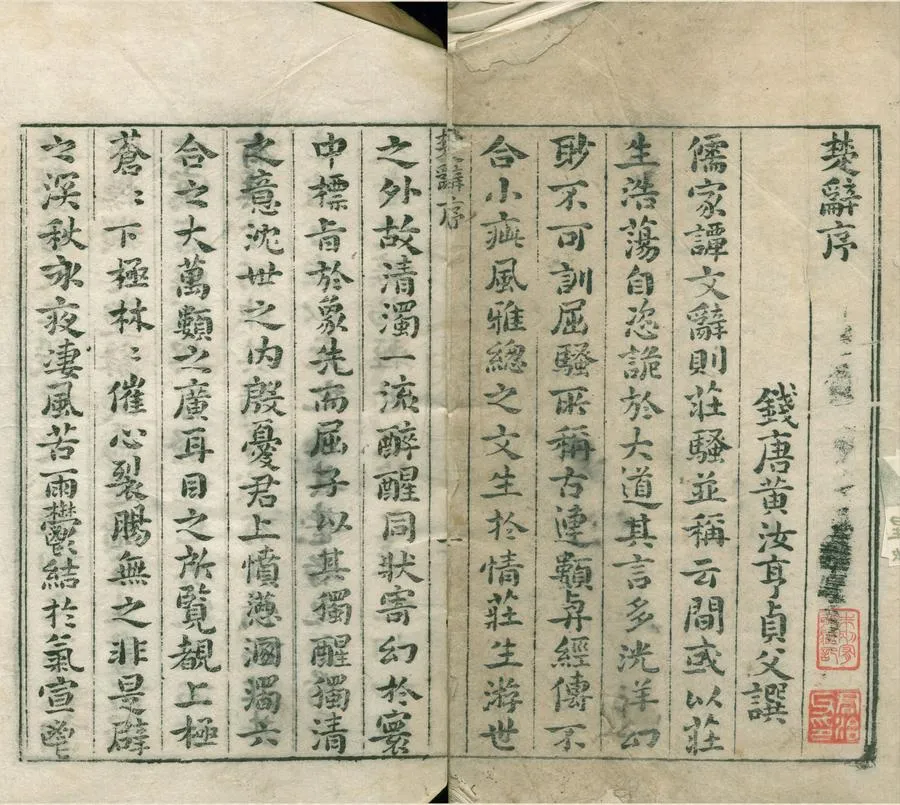 楚辭序
錢唐黃汝亨貞父譔
儒家譚文辭則莊騷並稱云間或以莊
生浩蕩自恣詭於大道其言多洸洋幻
眇不可訓屈騷所稱古連類與經傳不
合小疵風雅總之文生於情莊生游世
楚辭序
之外故清濁一流醉醒同狀寄幻於寰
中標旨於象先而屈子以其獨醒獨清
之意沈世之內殷憂君上憤懣溷濁六
合之大萬類之廣耳目之所覧覩上極
蒼〻下極林〻催心裂腸無之非是辟
之深秋永夜淒風苦雨鬱結於氣宣鬯